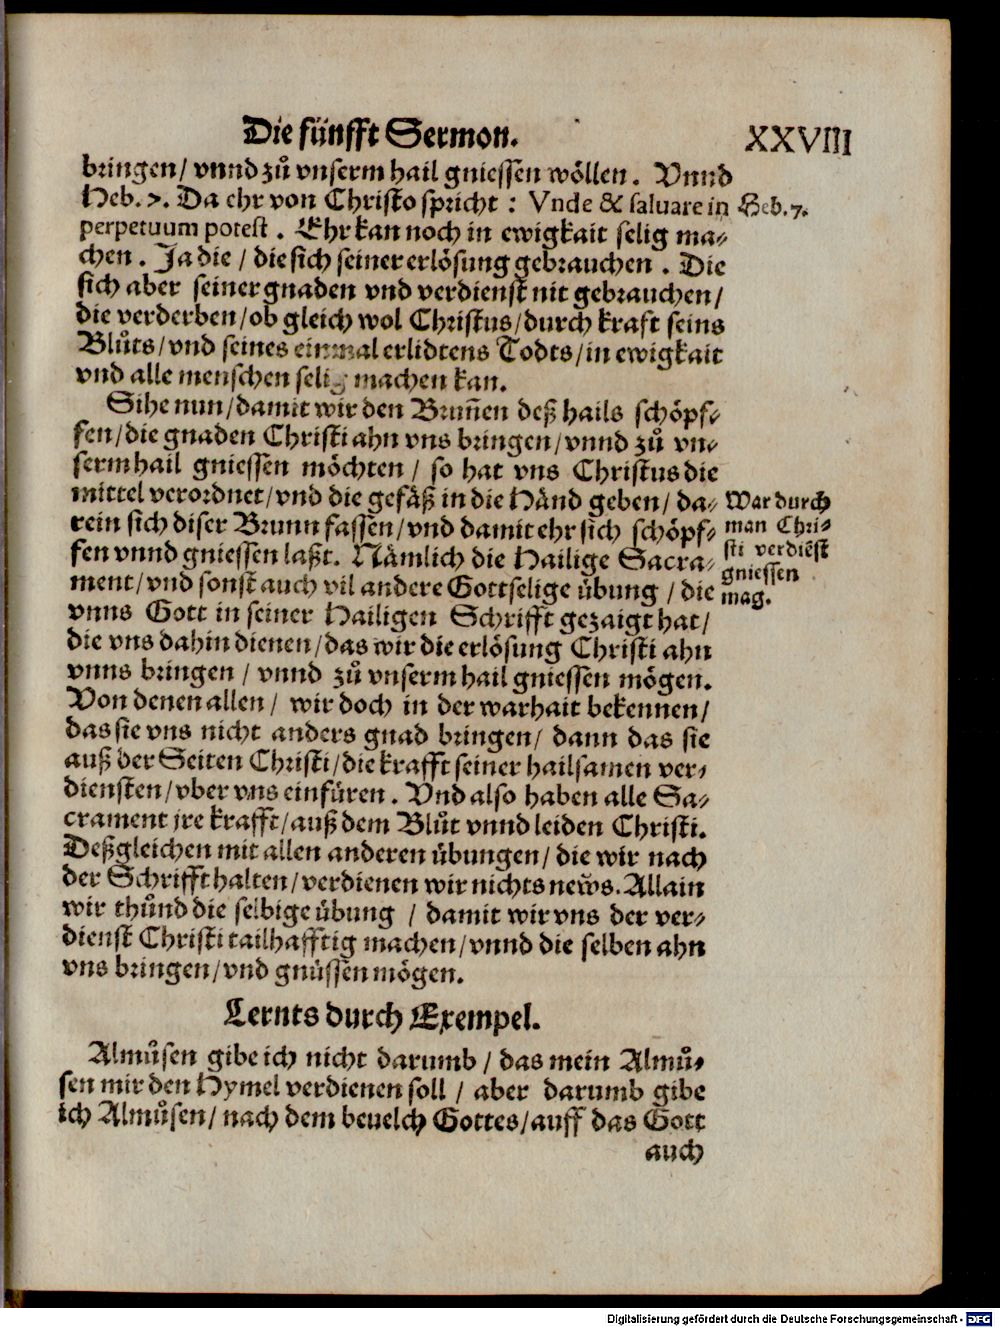 Die fünfft Sermon. XXVIII
bringen/ vnnd zů vnserm hail gniessen wöllen. Vnnd
Heb. 7. Da ehr von Christo spricht : Vnde & saluare in
Heb. 7.
perpetuum potest . Ehr kan noch in ewigkait selig ma⸗
chen . Ja die / die sich seiner erlösung gebrauchen . Die
sich aber seiner gnaden vnd verdienst nit gebrauchen/
die verderben/ ob gleich wol Christus/ durch kraft seins
Blůts/ vnd seines einmal erlidtens Todts/ in ewigkait
vnd alle menschen selig machen kan.
Sihe nun/ damit wir den Brunēn deß hails schöpf⸗
fen/ die gnaden Christi ahn vns bringen/ vnnd zů vn⸗
serm hail gniessen möchten / so hat vns Christus die
mittel verordnet/ vnd die gefäß in die Händ geben/ da⸗
rein sich diser Brunn fassen/ vnd damit ehr sich schöpf⸗
fen vnnd gniessen laßt. Nämlich die Hailige Sacra⸗
ment/ vnd sonst auch vil andere Gottselige übung / die
War durch
man Chri⸗
sti verdiēst
gniessen
mag.
vnns Gott in seiner Hailigen Schrifft gezaigt hat/
die vns dahin dienen/ das wir die erlösung Christi ahn
vnns bringen / vnnd zů vnserm hail gniessen mögen.
Von denen allen/ wir doch in der warhait bekennen/
das sie vns nicht anders gnad bringen/ dann das sie
auß der Seiten Christi/ die krafft seiner hailsamen ver⸗
diensten/ vber vns einfüren . Vnd also haben alle Sa⸗
crament jre krafft/ auß dem Blůt vnnd leiden Christi.
Deßgleichen mit allen anderen übungen/ die wir nach
der Schrifft halten/ verdienen wir nichts neẘs. Allain
wir thůnd die selbige übung / damit wir vns der ver⸗
dienst Christi tailhafftig machen/ vnnd die selben ahn
vns bringen/ vnd gnüssen mögen.
Lernts durch Exempel.
Almůsen gibe ich nicht darumb / das mein Almů⸗
sen mir den Hymel verdienen soll / aber darumb gibe
ich Almůsen/ nach dem beuelch Gottes/ auff das Gott
auch
Digitalisierung gefördert durch die Deutsche Forschungsgemeinschaft - DFG